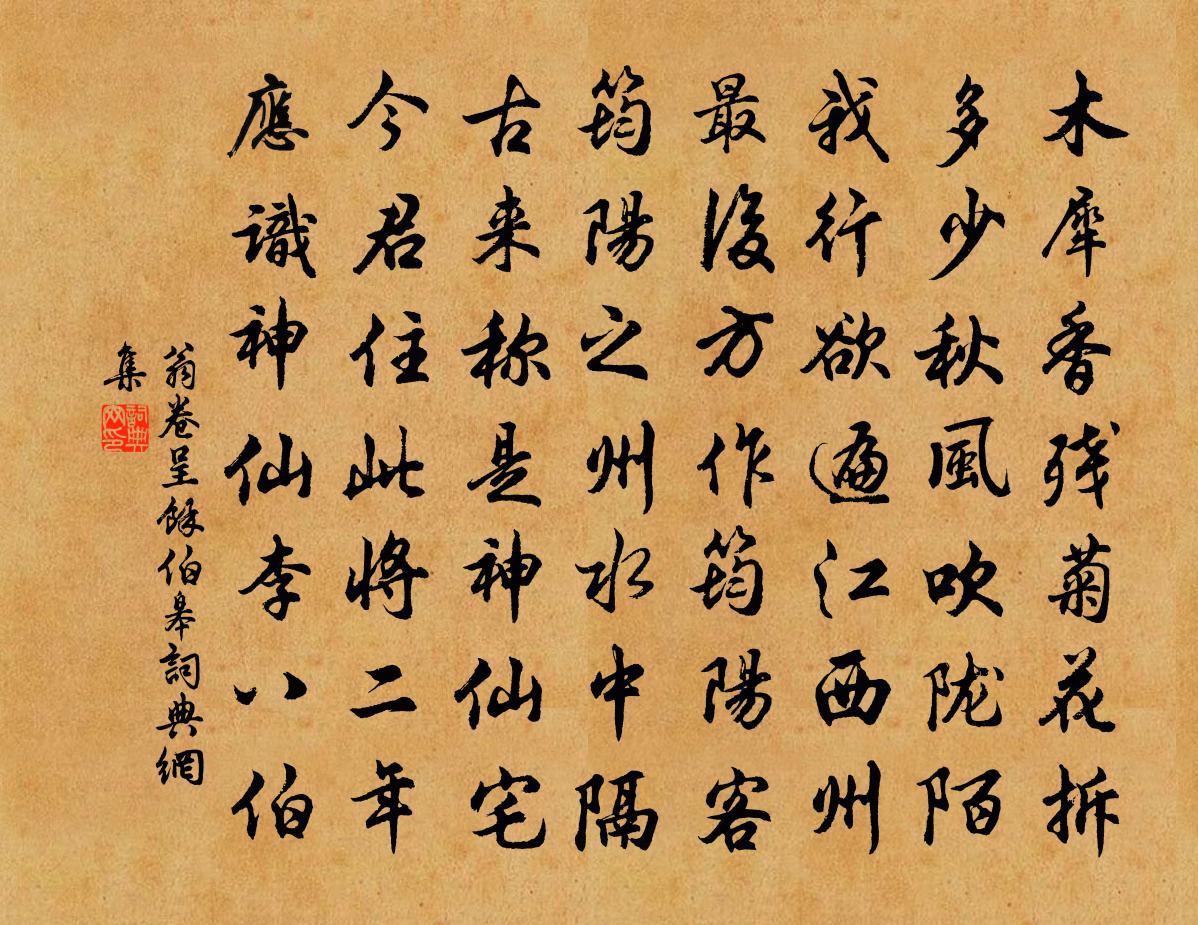 木犀香残菊花拆
多少秋风吹陇陌
我行欲遍江西州
最後方作筠陽客
筠陽之州水中隔
古来称是神仙宅
今君住此將二年
應識神仙李八伯
翁卷呈餘伯皋詞典網
集
詞典网印